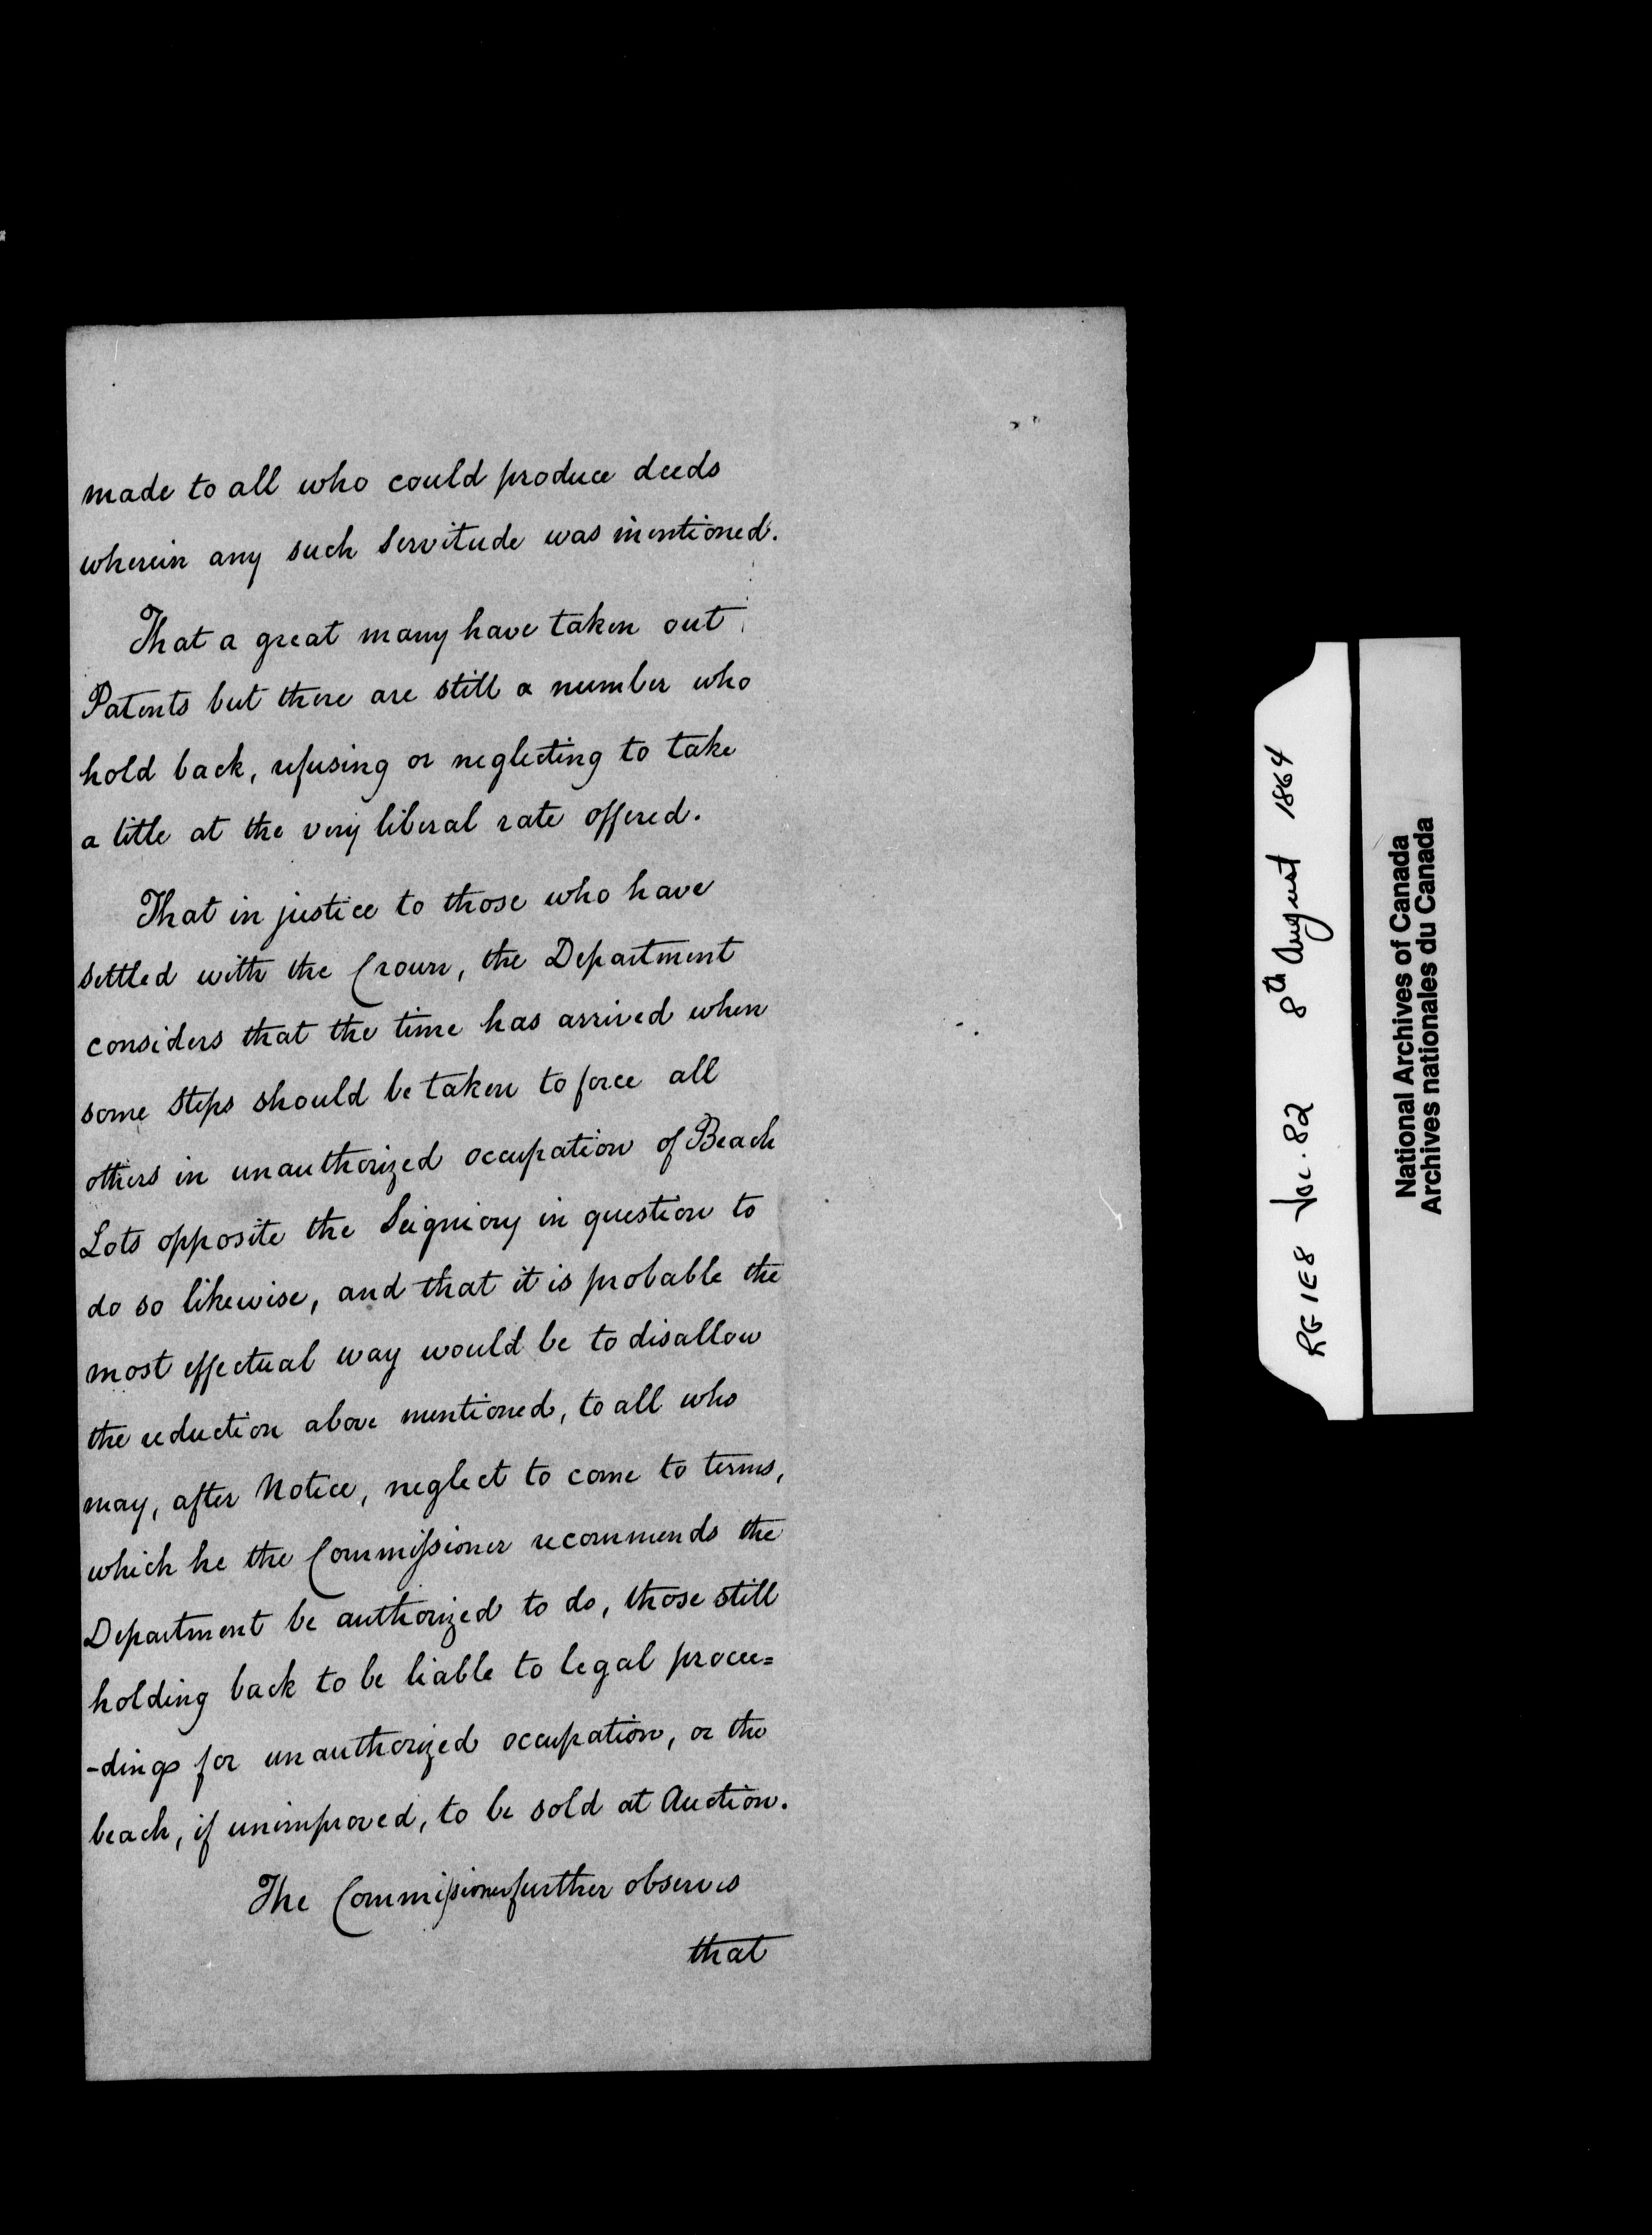 made to all who could produce deeds
wherein any such Servitude was mentioned.
That a great many have taken out
Patents but there are still a number who
hold back, refusing or neglecting to take
a title at the very liberal rate offered.
That in justice to those who have
settled with the Crown, the Department
considers that the time has arrived when
some steps should be taken to force all
others in unauthorized occupation of Beach
Lots opposite the Seigniory in question to
do so likewise, and that it is probable the
most effectual way would be to disallow
the reduction above mentioned, to all who
may, after Notice, neglect to come to terms,
which he the Commissioner recommends the
Department be authorized to do, those still
holding back to be liable to legal procee=
-dings for unauthorized occupation, or the
beach, if unimproved, to be sold at Auction.
The Commissioner further observes
that
RG 1E8 Vol. 82 8th August 1864
National Archives of Canada
Archives nationales du Canada